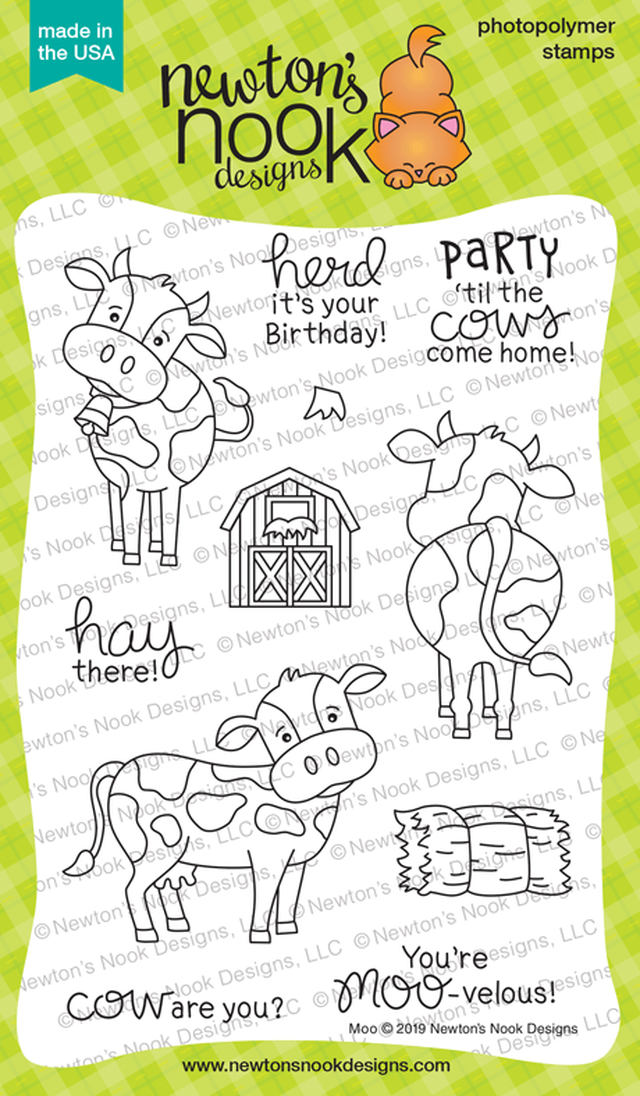 made in
the USA
photopolymer
stamps
newton's
nook
designs
herd
it's your
Birthday!
PaRTY
'til the
cows
come home!
hay
there!
cow are you?
You're
moo-velous!
Moo © 2019 Newton's Nook Designs
www.newtonsnookdesigns.com
©Newton's Nook Designs, LLC